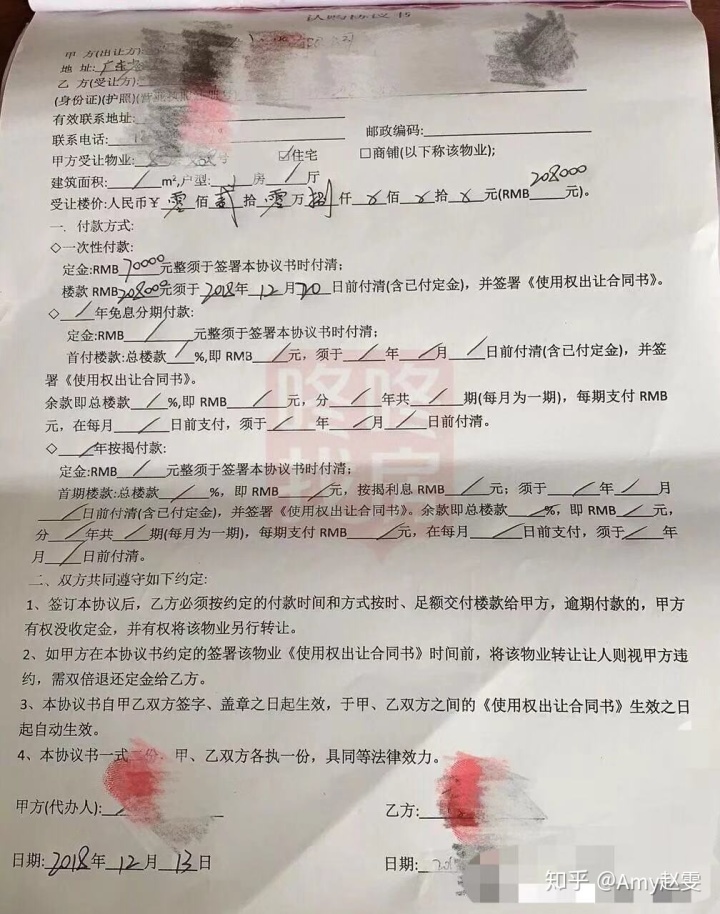 认购协议书
甲 方(出让方):
地 址:广东
乙 方(受让方):
(身份证)(护照)
有效联系地址:
联系电话: 邮政编码:
甲方受让物业: 号 ☑住宅 □商铺(以下称该物业);
建筑面积: / m²,户型: 1 房 / 厅
受让楼价:人民币￥ 零 佰 贰 拾 零 万 捌 仟 x 佰 x 拾 x 元(RMB 208000 元)。
一. 付款方式:
◇一次性付款:
定金:RMB 70000 元整须于签署本协议书时付清;
楼款 RMB 208000 元须于 2018 年 12 月 20 日前付清(含已付定金)，并签署《使用权出让合同书》。
◇ / 年免息分期付款:
定金:RMB / 元整须于签署本协议书时付清;
首付楼款:总楼款 / %,即 RMB / 元，须于 / 年 / 月 / 日前付清(含已付定金)，并签
署《使用权出让合同书》。
余款即总楼款 / %,即 RMB / 元，分 / 年共 / 期(每月为一期)，每期支付 RMB
元，在每月 / 日前支付，须于 / 年 / 月 / 日前付清。
◇ / 年按揭付款:
定金:RMB / 元整须于签署本协议书时付清;
首期楼款:总楼款 / %，即 RMB / 元，按揭利息 RMB / 元；须于 / 年 / 月
/ 日前付清(含已付定金)，并签署《使用权出让合同书》。余款即总楼款 / %，即 RMB / 元，
分 / 年共 / 期(每月为一期)，每期支付 RMB / 元，在每月 / 日前支付，须于 / 年
月 / 日前付清。
二、双方共同遵守如下约定:
1、签订本协议后，乙方必须按约定的付款时间和方式按时、足额交付楼款给甲方，逾期付款的，甲方
有权没收定金，并有权将该物业另行转让。
2、如甲方在本协议书约定的签署该物业《使用权出让合同书》时间前，将该物业转让让人则视甲方违
约，需双倍退还定金给乙方。
3、本协议书自甲乙双方签字、盖章之日起生效，于甲、乙双方之间的《使用权出让合同书》生效之日
起自动生效。
4、本协议书一式二份，甲、乙双方各执一份，具同等法律效力。
甲方(代办人): 乙方:
日期: 2018 年 12 月 13 日 日期: 
咚咚找房
知乎 @Amy赵雯